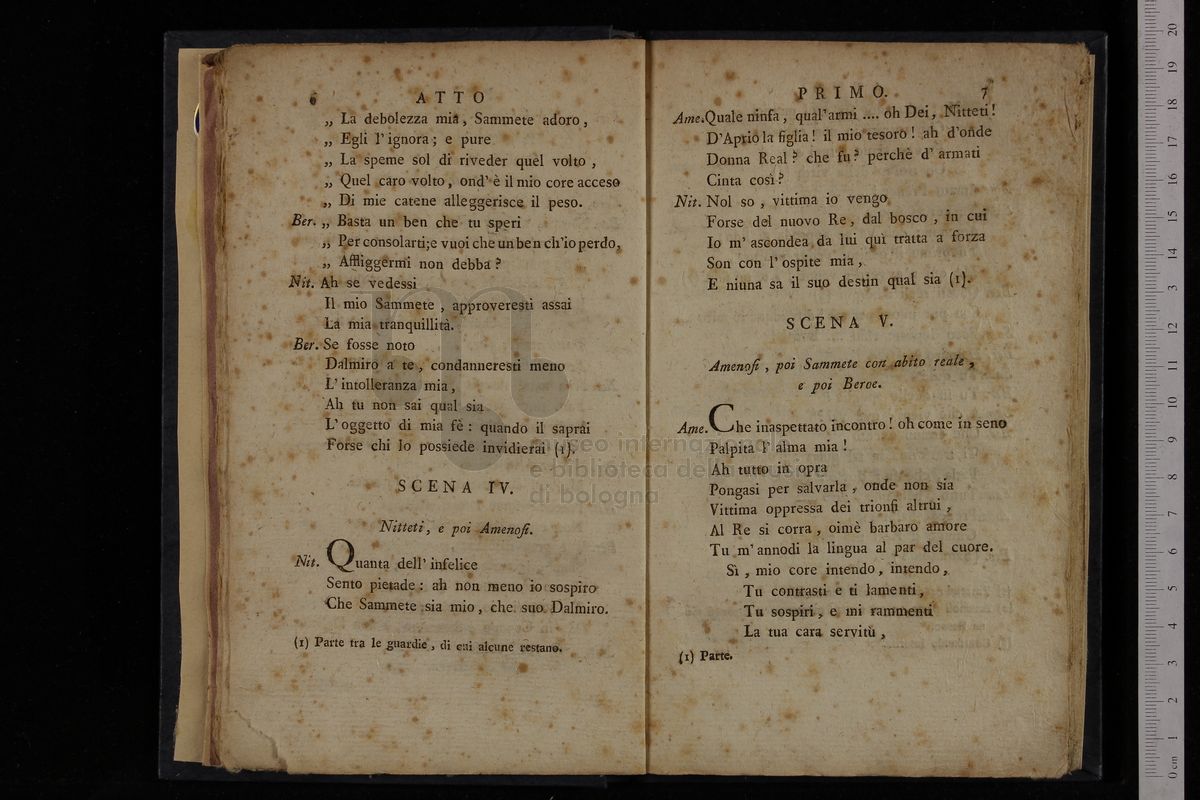 6 ATTO
„ La debolezza mia, Sammete adoro,
„ Egli l'ignora; e pure
„ La speme sol di riveder quel volto,
„ Quel caro volto, ond' è il mio core acceso
„ Di mie catene alleggerisce il peso.
Ber. „ Basta un ben che tu speri
„ Per consolarti; e vuoi che un ben ch'io perdo,
„ Affliggermi non debba?
Nit. Ah se vedessi
Il mio Sammete, approveresti assai
La mia tranquillità.
Ber. Se fosse noto
Dalmiro a te, condanneresti meno
L'intolleranza mia,
Ah tu non sai qual sia
L'oggetto di mia fè: quando il saprai
Forse chi lo possiede invidierai (1).
SCENA IV.
Nitteti, e poi Amenofi.
Nit. Quanta dell' infelice
Sento pietade: ah non meno io sospiro
Che Sammete sia mio, che suo Dalmiro.
(1) Parte tra le guardie, di cui alcune restano.
PRIMO. 7
Ame. Quale ninfa, qual'armi .... oh Dei, Nitteti!
D'Aprio la figlia! il mio tesoro! ah d'onde
Donna Real? che fu? perchè d' armati
Cinta così?
Nit. Nol so, vittima io vengo
Forse del nuovo Re, dal bosco, in cui
Io m' ascondea da lui quì tratta a forza
Son con l' ospite mia,
E niuna sa il suo destin qual sia (1).
SCENA V.
Amenofi, poi Sammete con abito reale,
e poi Beroe.
Ame. Che inaspettato incontro! oh come in seno
Palpita l' alma mia!
Ah tutto in opra
Pongasi per salvarla, onde non sia
Vittima oppressa dei trionfi altrui,
Al Re si corra, oimè barbaro amore
Tu m' annodi la lingua al par del cuore.
Sì, mio core intendo, intendo,
Tu contrasti e ti lamenti,
Tu sospiri, e mi rammenti
La tua cara servitù,
(1) Parte.
museo internazionale
e biblioteca della musica
di bologna
0 cm 1 2 3 4 5 6 7 8 9 10 11 12 13 14 15 16 17 18 19 20